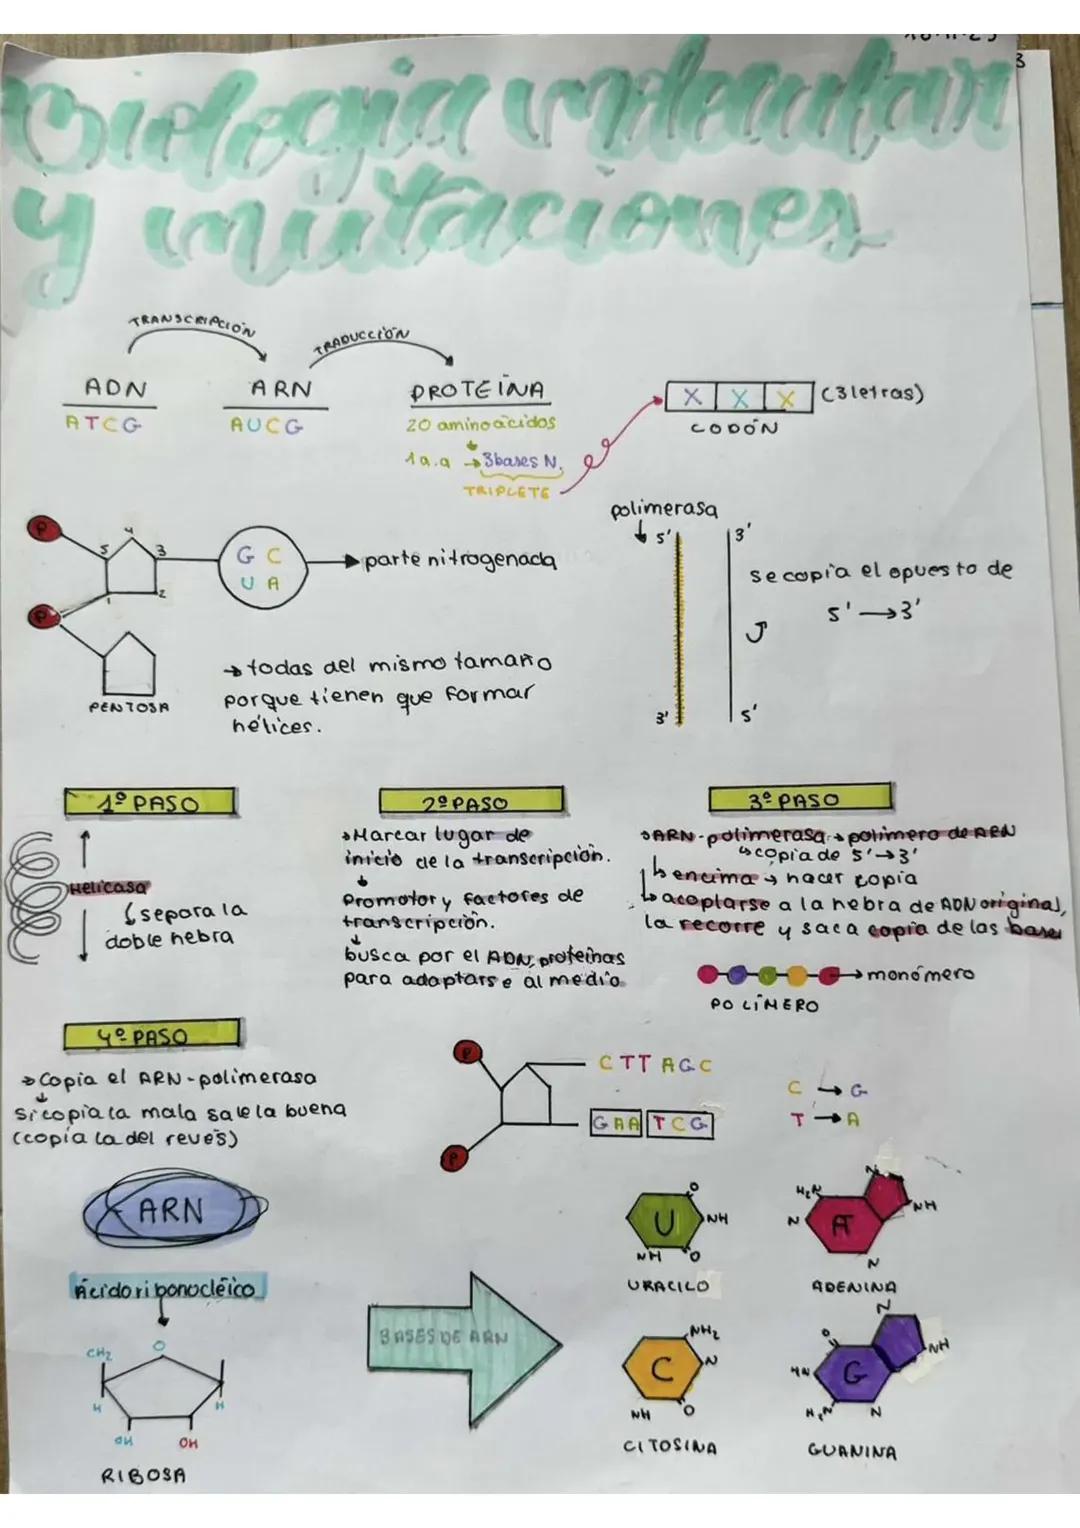 Biología molecular
y mutaciones
3
TRANSCRIPCIÓN
TRADUCCIÓN
ADN
ARN
PROTEÍNA
ATCG
AUCG
20 aminoácidos
1a.a → 3bases N.
TRIPLETE
X X X (3letras)
CODÓN
P
5 4 3
1 2
P
G C
U A
parte nitrogenada
PENTOSA
→ todas del mismo tamaño
porque tienen que formar
hélices.
polimerasa
5' 3'
se copia el opuesto de
5' → 3'
3' 5'
1º PASO
Helicasa
separa la
doble hebra
2º PASO
Marcar lugar de
inicio de la transcripción.
Promotor y factores de
transcripción.
busca por el ADN, proteínas
para adaptarse al medio
3º PASO
ARN-polimerasa → polímero de ARN
copia de 5'→3'
encima → hacer copia
acoplarse a la hebra de ADN original,
la recorre y saca copia de las bases
monómero
POLÍMERO
4º PASO
→ Copia el ARN-polimerasa
Si copia la mala sale la buena
(copia la del revés)
P
P
CTT AGC
GAA TCG
C → G
T → A
ARN
Ácido ribonocléico
CH₂
O
H H
OH OH
RIBOSA
BASES DE ARN
U
O
NH
NH O
URACILO
A
H₂N
N
N
NH
N
ADENINA
C
NH₂
N
NH O
CITOSINA
G
N
O
HN
NH
H₂N N
GUANINA